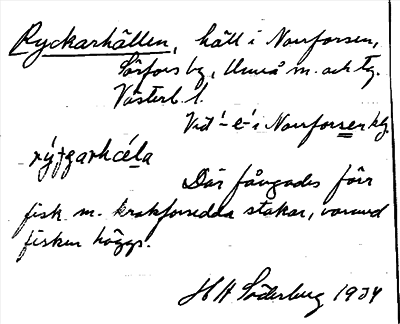 Ryckarhällen, häll i Norrforsen,
Sörfors by, Umeå m. och tg.
Västerb. l.
Vid -e- i Norrforsen
rýzgarhcéla
Där fångades förr
fisk m. krokförsedda stakar, varmed
fisken höggs.
H H Söderberg 1934